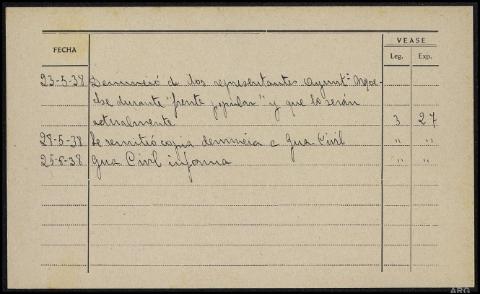 VEASE
FECHA
Leg. Exp.
23-5-38 Denunció de dos representantes Ayunt.º
durante "frente popular" y que lo serán
actualmente 3 27
28-5-38 Se remitió copia denuncia a Gua Civil " "
25-6-38 Gua Civil informa " "
ARG